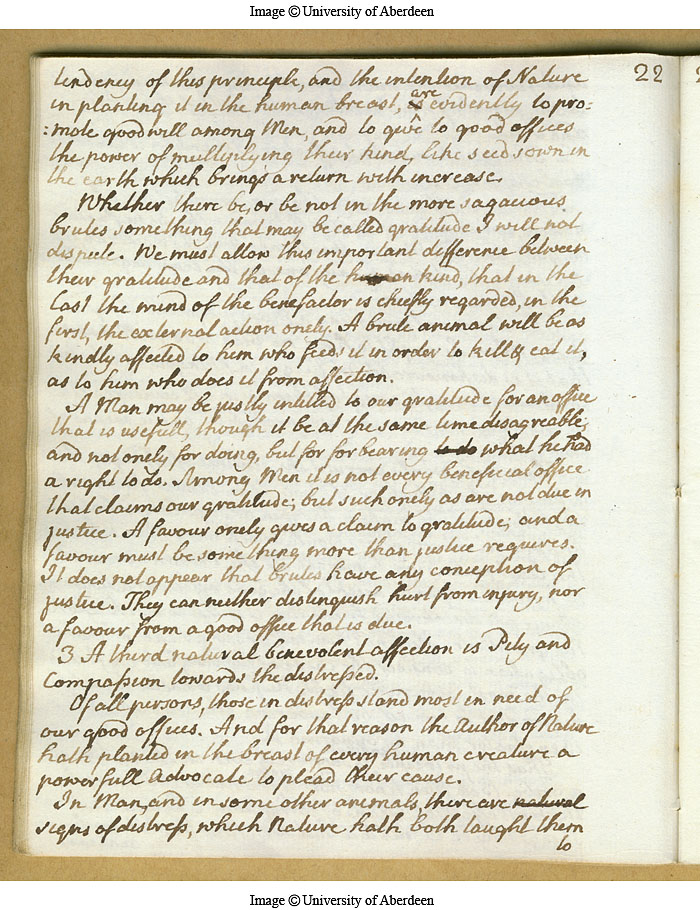 Image © University of Aberdeen
22
tendency of this principle, and the intention of Nature
in planting it in the human breast, is are evidently to pro=
:mote good will among Men, and to give to good offices
the power of multiplying their kind, like seed sown in
the earth which brings a return with increase.
Whether there be, or be not in the more sagacious
brutes something that may be called gratitude I will not
dispute. We must allow this important difference between
their gratitude and that of the human kind, that in the
last the mind of the benefactor is chiefly regarded, in the
first, the external action onely. A brute animal will be as
kindly affected to him who feeds it in order to kill & eat it,
as to him who does it from affection.
A Man may be justly intitled to our gratitude for an office
that is usefull, though it be at the same time disagreable;
and not onely for doing, but for for bearing to do what he had
a right to do. Among Men it is not every beneficial office
that claims our gratitude; but such onely as are not due in
justice. A favour onely gives a claim to gratitude; and a
favour must be something more than justice requires.
It does not appear that brutes have any conception of
justice. They can neither distinguish hurt from injury, nor
a favour from a good office that is due.
3 A third natural benevolent affection is Pity and
Compassion towards the distressed.
Of all persons, those in distress stand most in need of
our good offices. And for that reason the Author of Nature
hath planted in the breast of every human creature a
powerfull Advocate to plead their cause.
In Man, and in some other animals, there are natural
signs of distress, which Nature hath both taught them
to
Image © University of Aberdeen